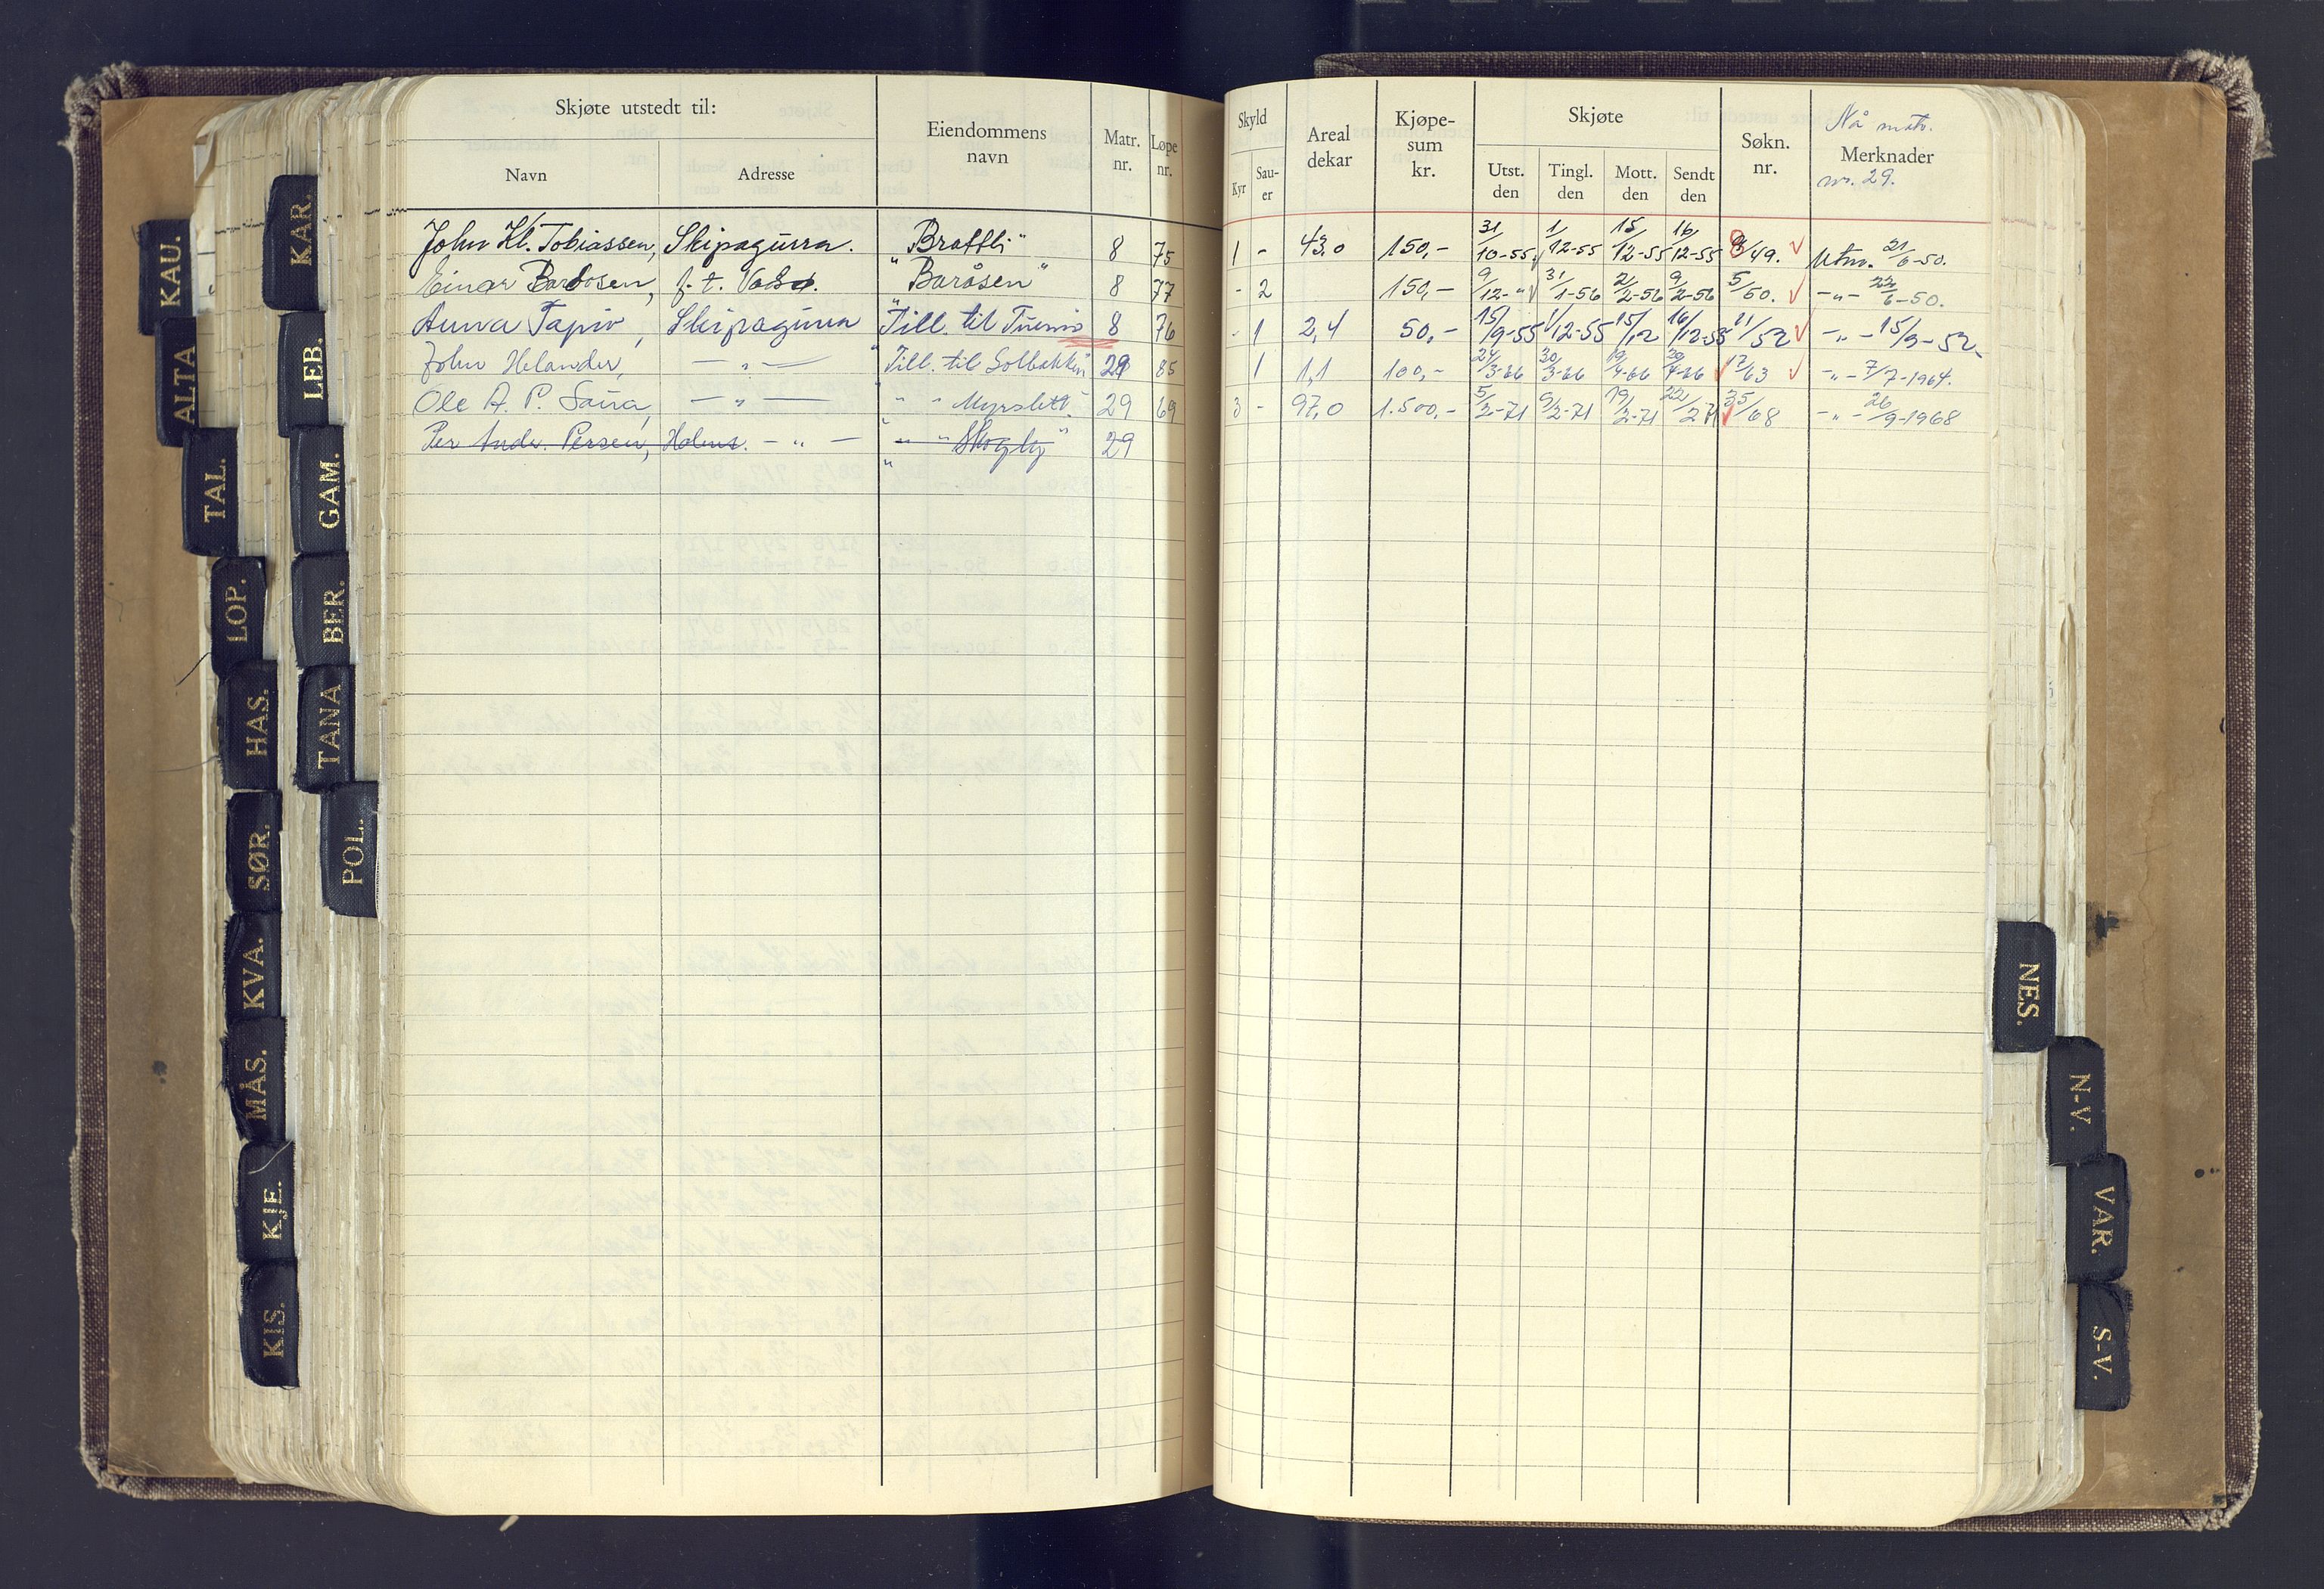 Skjøte utstedt til:
Navn
Adresse
Eiendommens navn
Matr. nr.
Løpe nr.
Skyld
Kyr
Sauer
Areal dekar
Kjøpesum kr.
Skjøte
Utst. den
Tingl. den
Mott. den
Sendt den
Søkn. nr.
Nå matr.
Merknader
nr. 29.
John Kl. Tobiassen, Skipagurra. "Brattli" 8 75 1 - 43,0 150,- 31/10-55 1/12-55 15/12-55 16/12-55 /49. Utm. 21/6-50.
Einar f. t. Vadsø. "Baråsen" 8 77 - 2 150,- 9/12-"- 31/1-56 2/2-56 9/2-56 5/50. -"- 22/6-50.
Anna Tapio, Skipagurra "Till. til 8 76 - 1 2,4 50,- 15/9-55 1/12-55 15/12 16/12-55 11/52 -"- 15/9-52
John Helander, -"- "Till. til Solbakken" 29 85 1 1,1 100,- 24/3-66 30/3-66 19/4-66 20/4-66 12/63 -"- 7/7-1964.
Ole A. P. Saua, -"- " " Myrslett" 29 69 3 - 97,0 1.500,- 5/2-71 9/2-71 19/2-71 22/2 71 35/68 -"- 26/9-1968
Per Andr. Persen, Holms. -"- " " Skogly" 29
KAU.
ALTA
TAL.
LOP.
HAS.
SØR.
KVA.
MÅS.
KJE.
KIS.
KAR.
LEB.
GAM.
BER.
TANA
POL.
NES.
N-V.
VAR.
S-V.